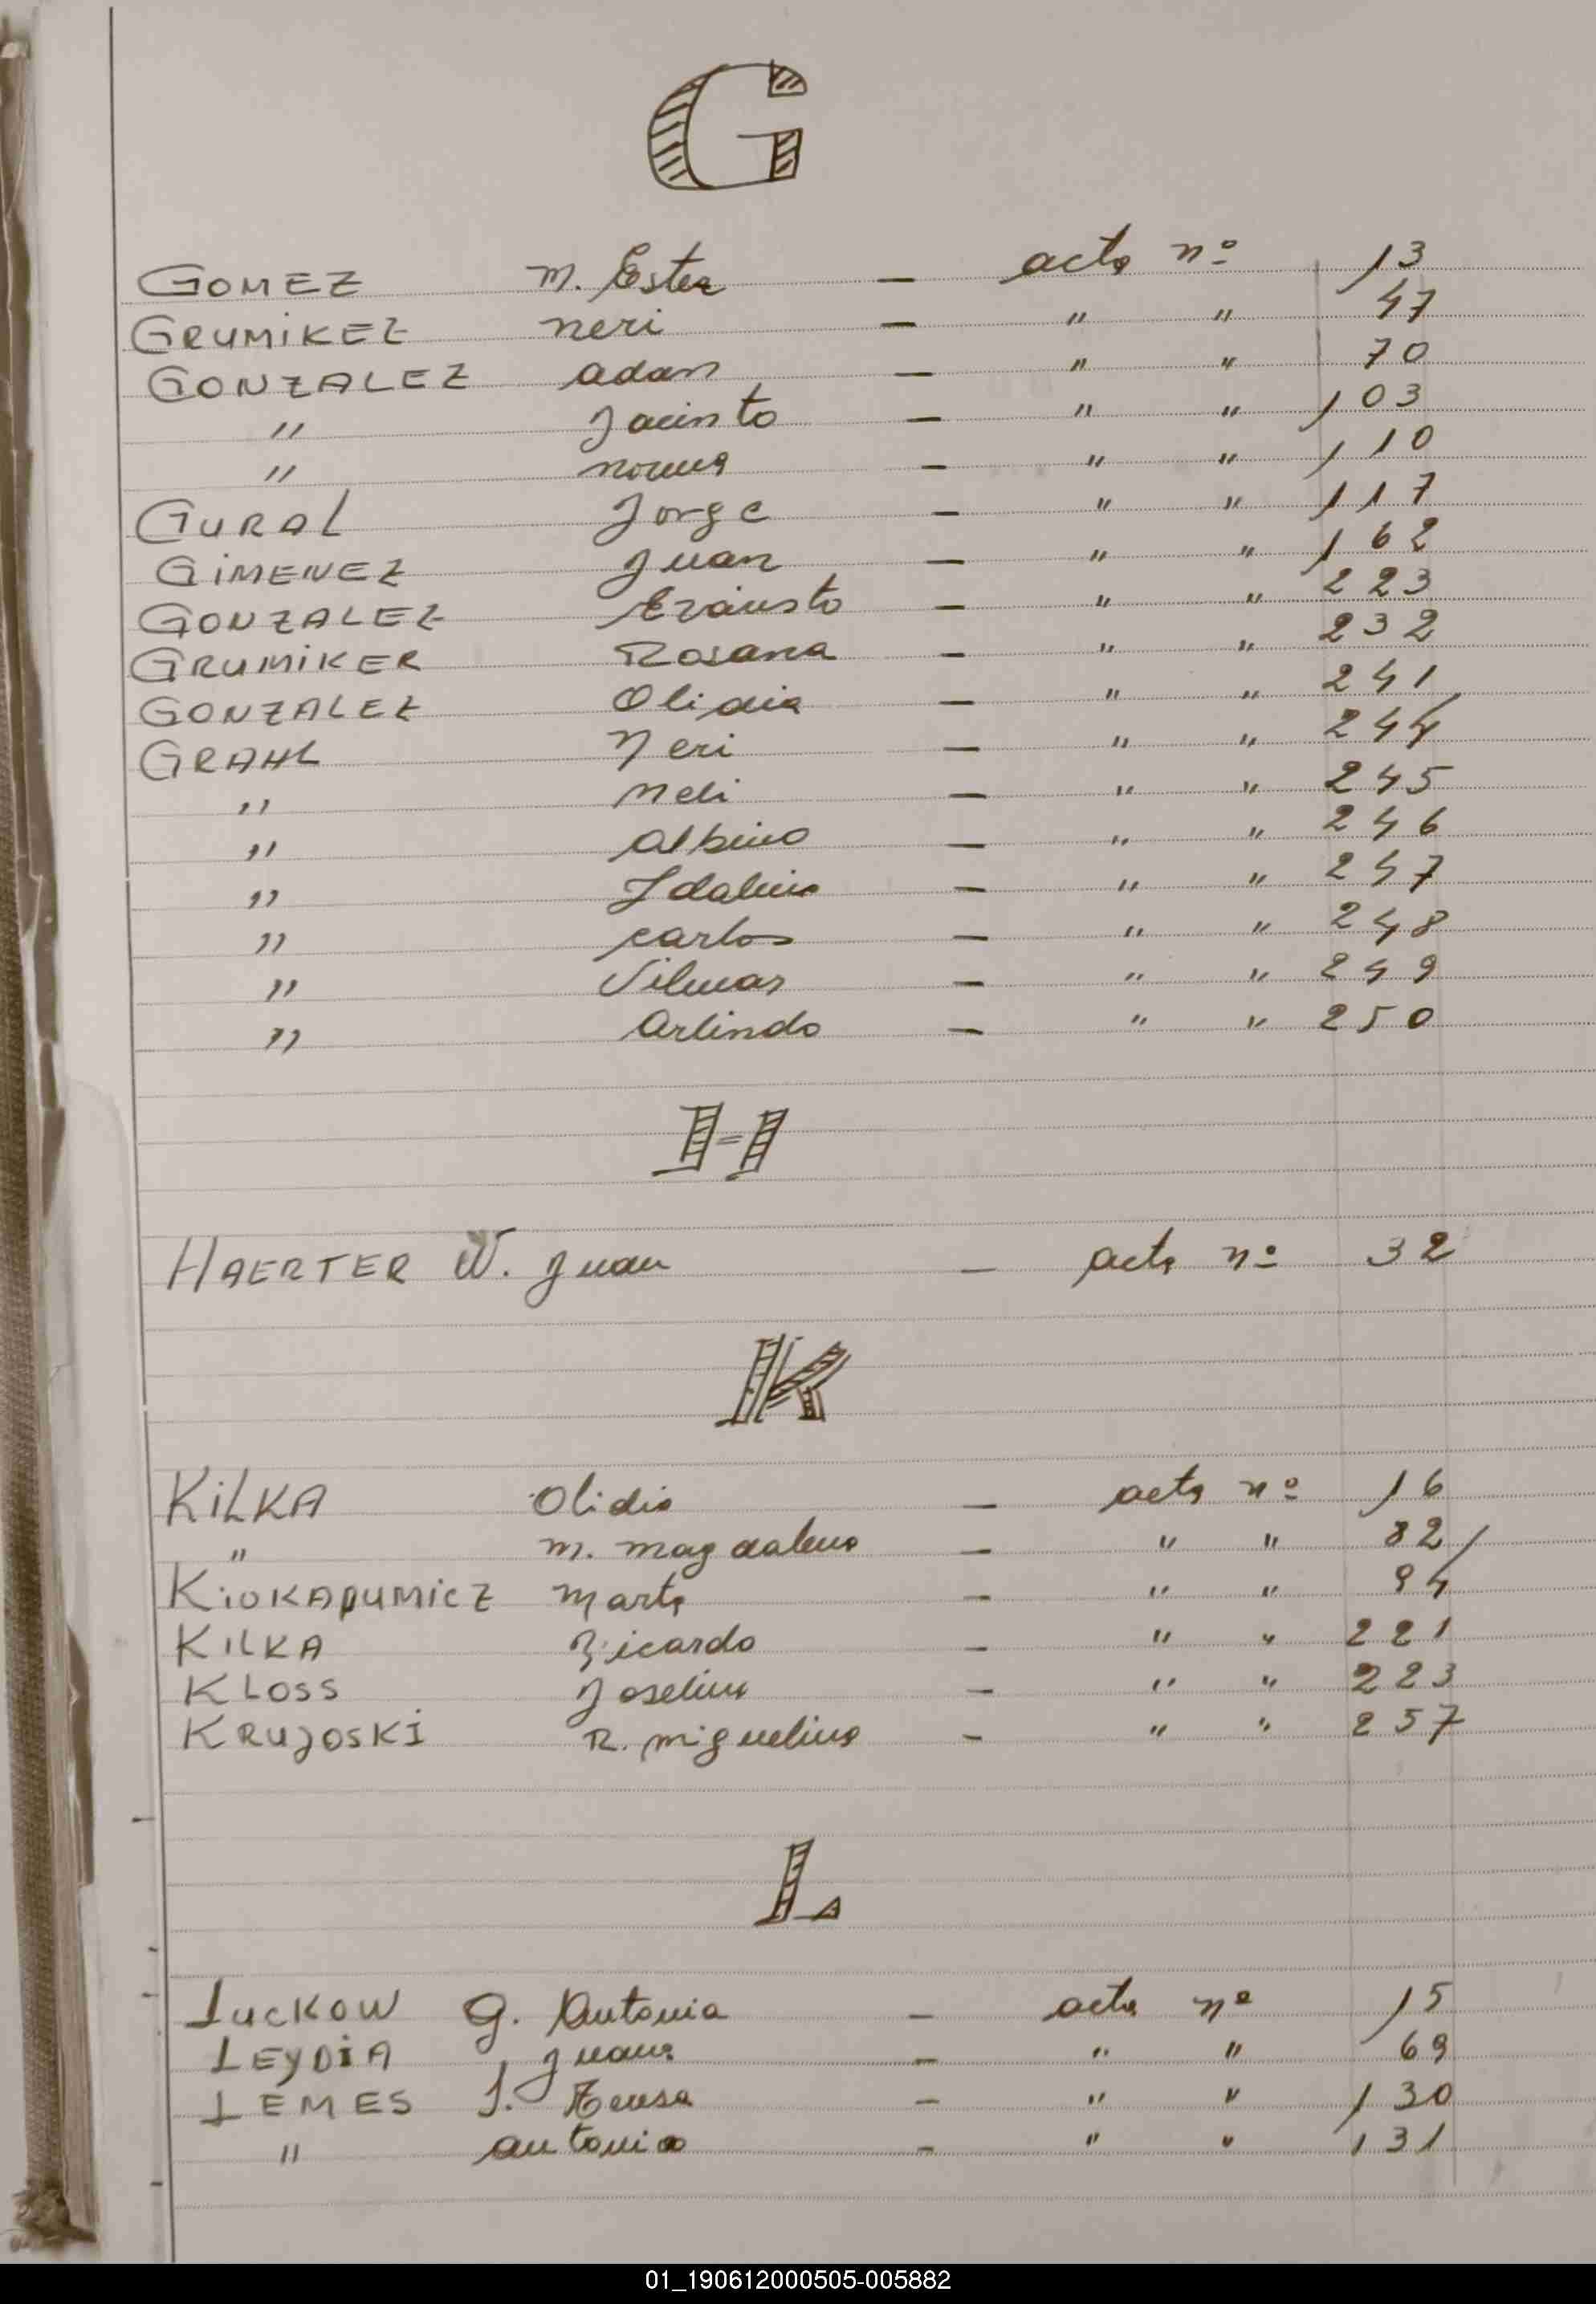 G
GOMEZ M. Ester — acta nº 13
GRUMIKEZ Neri — " " 47
GONZALEZ Adan — " " 70
" Jacinto — " " 103
" Norma — " " 110
GURAL Jorge — " " 117
GIMENEZ Juan — " " 162
GONZALEZ — " " 223
GRUMIKER Rosana — " " 232
GONZALEZ Olidia — " " 241
GRAHL Neri — " " 244
" Neli — " " 245
" Albino — " " 246
" Idalina — " " 247
" Carlos — " " 248
" Vilmar — " " 249
" Arlindo — " " 250
H
HAERTER W. Juan — acta nº 32
K
KILKA Olidia — acta nº 16
" M. Magdalena — " " 82
Marta — " " 94
KILKA Ricardo — " " 221
KLOSS Joselina — " " 223
KRUJOSKI R. Miguelina — " " 257
L
LUCKOW G. Antonia — acta nº 15
LEYDIA Juana — " " 69
LEMES J. — " " 130
" Antonio — " " 131
01_190612000505-005882